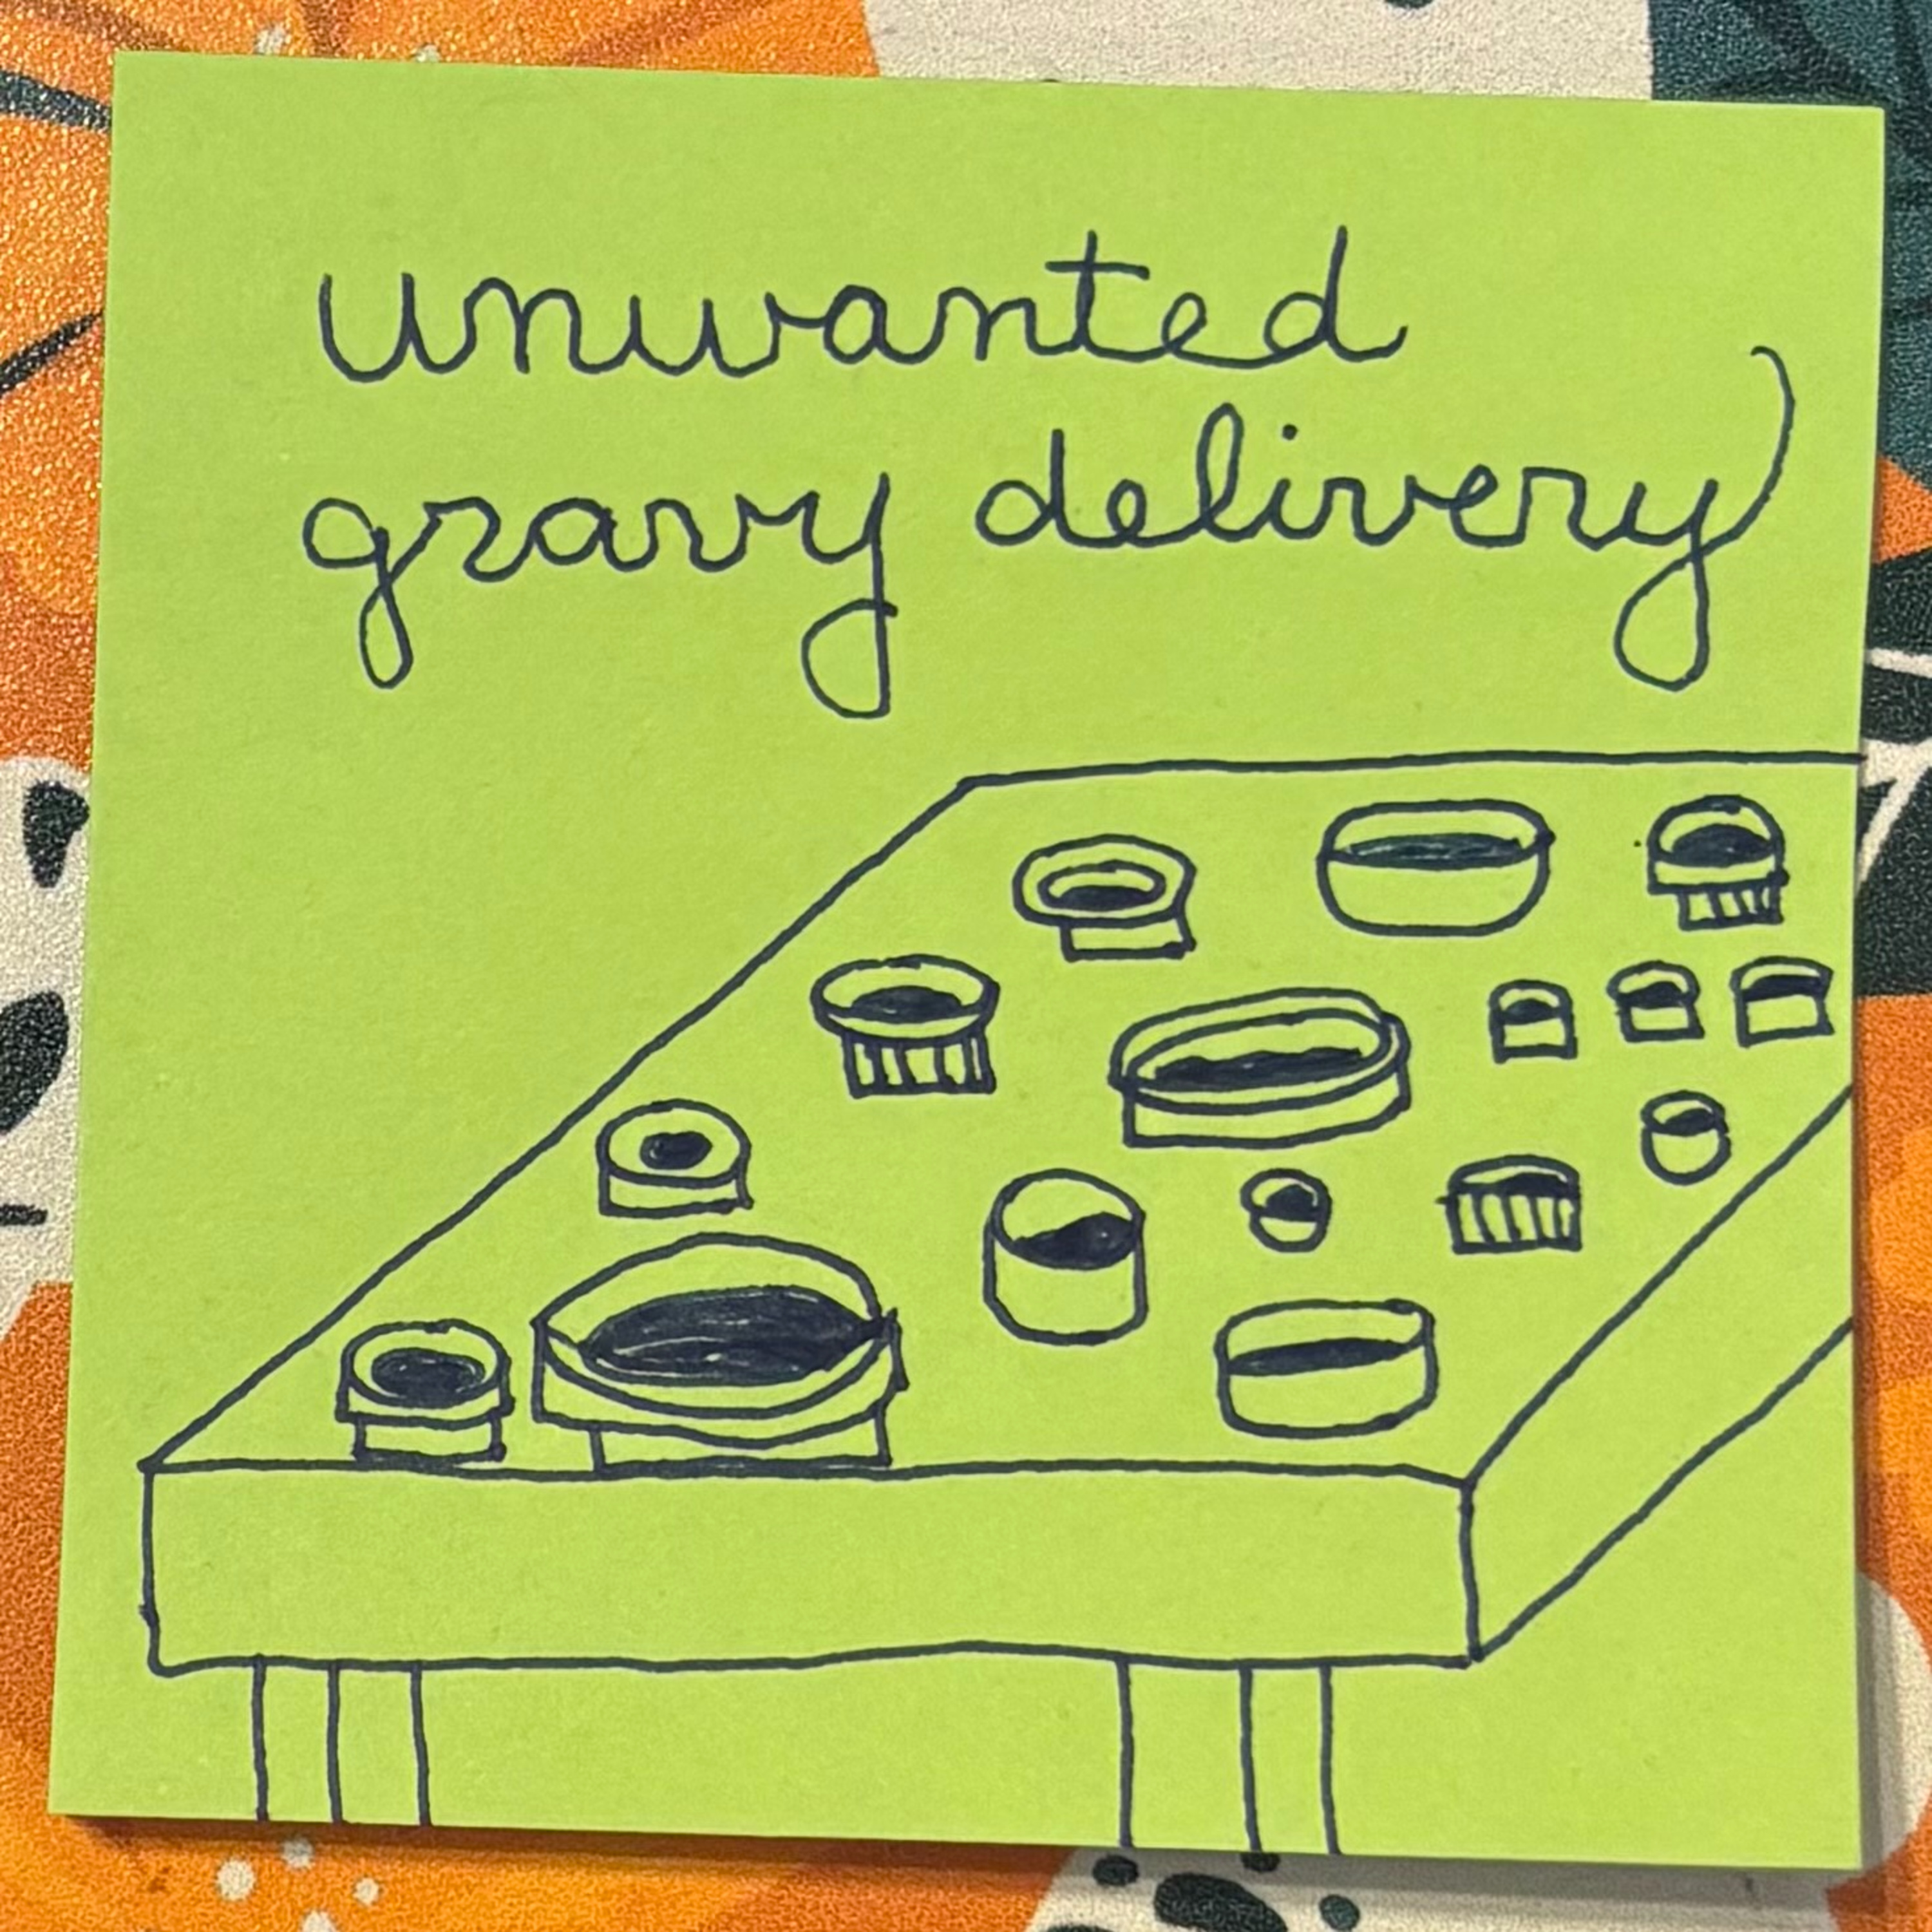 unwanted
gravy delivery